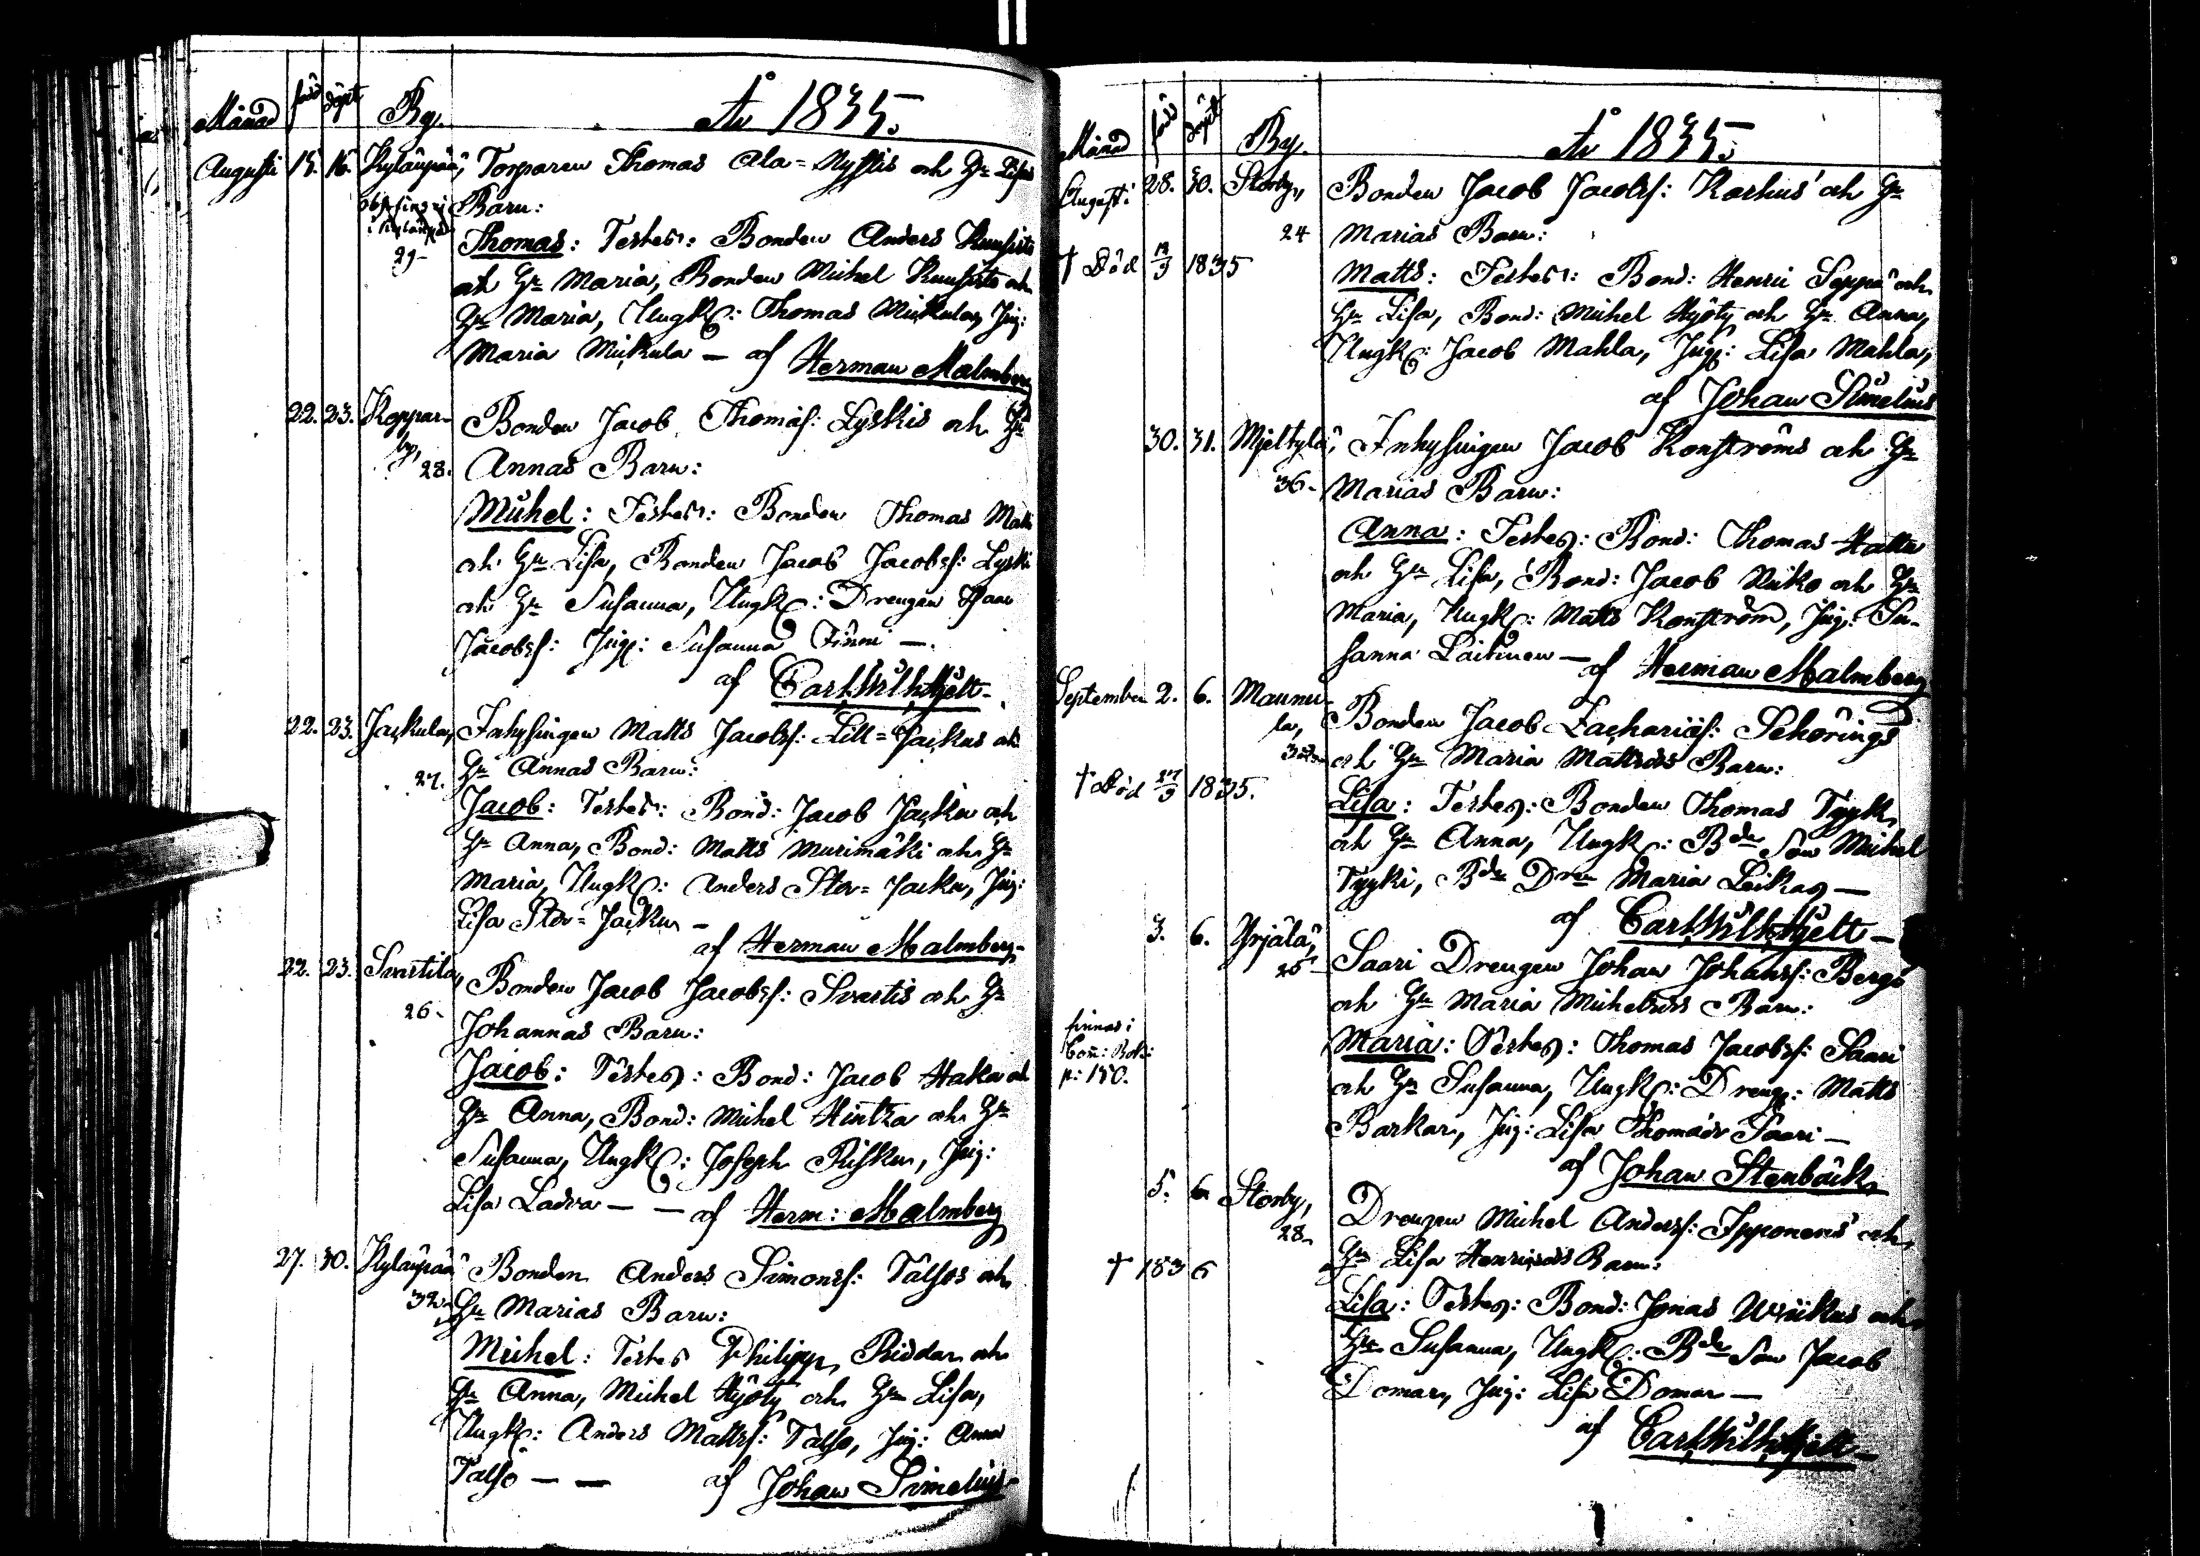 Månad född döpt By. År 1835.
Augusti 15. 16. Kylänpää, Torparen Thomas Ala=Nyssis och Hu Lisas
Barn:
29- Thomas: Testes: Bonden Anders Kuusisto
och Hu Maria, Bonden Michel Kuusisto och
Hu Maria, Ungk: Thomas Mickula, Pig:
Maria Mickula — af Herman Malmberg
22. 23. Keppar- Bonden Jacob Thomas: Lyskis och Hu
by, 28. Annas Barn:
Michel: Testes: Bonden Thomas
och Hu Lisa, Bonden Jacob Jacobss: Lyski
och Hu Susanna, Ungk: Drengen
Jacobss: Pig: Susanna Finni —
af Carl Wilh. Hjelt
22. 23. Jackula, Inhysingen Matts Jacobss: Lill=Jackus och
27. Hu Annas Barn:
Jacob: Testes: Bond: Jacob Jacku och
Hu Anna, Bond: Matts Murimäki och Hu
Maria, Ungk: Anders Stor=Jacku, Pig:
Lisa Stor=Jacku —
af Herman Malmberg
22. 23. Svartila, Bonden Jacob Jacobss: Svartis och Hu
26. Johannas Barn:
Jacob: Testes: Bond: Jacob Haka och
Hu Anna, Bond: Michel Hintza och Hu
Susanna, Ungk: Joseph Risku, Pig:
Lisa Ladva — — af Herm: Malmberg
27. 30. Kylänpää Bonden Anders Simonss: Talsos och
32. Hu Marias Barn:
Michel: Testes Philipp Riddar och
Hu Anna, Michel Hyöty och Hu Lisa,
Ungk: Anders Mattss: Talso, Pig: Anna
Talso — — af Johan Simelius
Månad född döpt By. År 1835.
Augusti 28. 30. Storby, Bonden Jacob Jacobss: Karhus' och Hu
24 Marias Barn:
† Död 1835
Matts: Testes: Bond: Henric Seppä och
Hu Lisa, Bond: Michel Hyöty och Hu Anna,
Ungk: Jacob Mahla, Pig: Lisa Mahla,
af Johan Simelius
30. 31. Mieltylä, Inhysingen Jacob Konströms och Hu
36- Marias Barn:
Anna: Testes: Bond: Thomas Hattu
och Hu Lisa, Bond: Jacob Kuiko och Hu
Maria, Ungk: Matts Konström, Pig: Su-
sanna Laitinen — af Herman Malmberg
September 2. 6. Maunu-
la, Bonden Jacob Zachariäs: Schörings
och Hu Maria Mattsdrs Barn:
† Död 27/9 1835. Lisa: Testes: Bonden Thomas Tyyki
och Hu Anna, Ungk: Bde Son Michel
Tyyki, Bde Drn Maria Leikas —
af Carl Wilh. Hjelt —
3. 6. Yrjälä, Saari Drengen Johan Johanss: Bergs
25- och Hu Maria Michelsdrs Barn:
finnes i
Com: Bok:
p: 150.
Maria: Testes: Thomas Jacobss: Saari
och Hu Susanna, Ungk: Dreng: Matts
Barkar, Pig: Lisa Thomasdr Saari —
af Johan Stenbäck
5. 6 Storby, Drengen Michel Anderss: Ipponens' och
28- Hu Lisa Henricsdrs Barn:
† 1836
Lisa: Testes: Bond: Jonas och
Hu Susanna, Ungk: Bde Son Jacob
Domar, Pig: Lisa Domar —
af Carl Wilh. Hjelt —